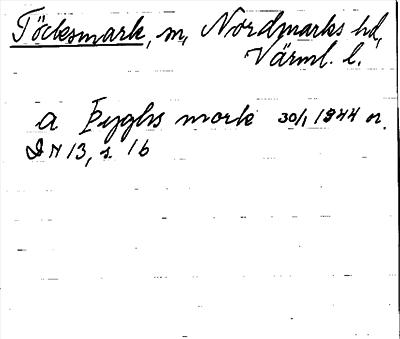 Töcksmark, m, Nordmarks hd,
Värml. l.
a Þyghs mork 30/1 1344 n.
DN 13, s. 16